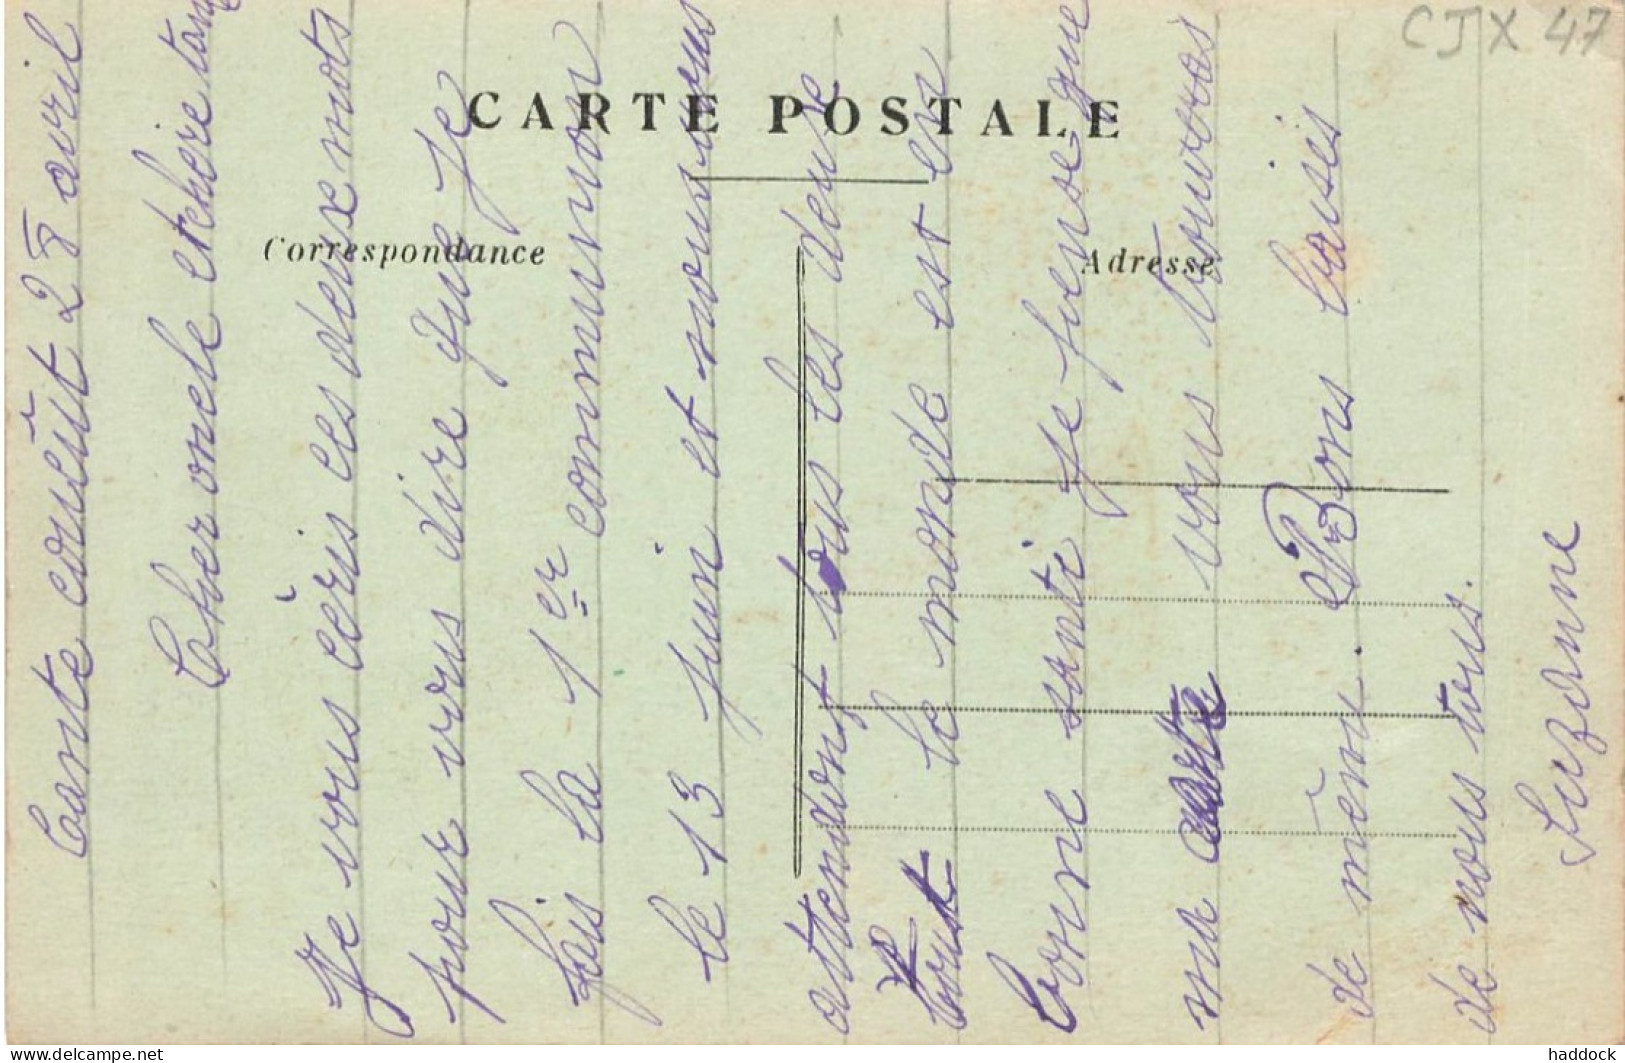 CJX 47
CARTE POSTALE
Correspondance
Adresse
28 avril
Cher oncle et chère tante
Je vous écris ces deux mots
pour vous dire que je
fais la 1er communion
le 13 juin et nous vous
attendont tous les deuse
Tout le monde est en
bonne santé je pense que
ma carte vous trouvras
de mème. Bons baisés
de nous tous.
Suzanne
www.delcampe.net
haddock